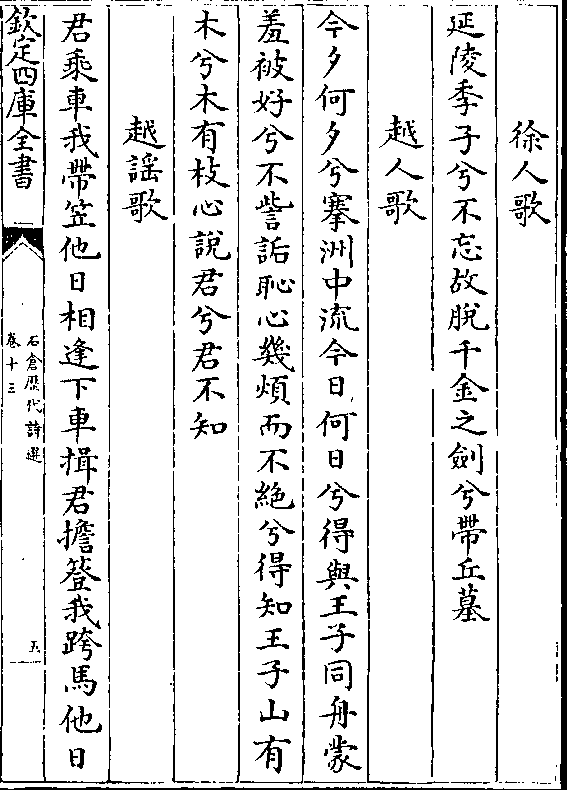 徐人歌
延陵季子兮不忘故脫千金之劍兮帶丘墓
越人歌
今夕何夕兮搴洲中流今日何日兮得與王子同舟蒙
羞被好兮不訾詬恥心幾煩而不絶兮得知王子山有
木兮木有枝心說君兮君不知
越謡歌
君乘車我帶笠他日相逢下車揖君擔簦我跨馬他日
欽定四庫全書
石倉歴代詩選
卷十三
五